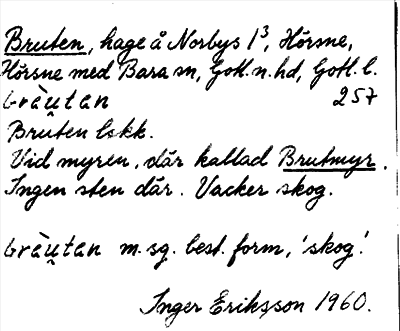 Bruten, hage å Norbys 1³, Hörsne,
Hörsne med Bara sn, Gotl. n. hd, Gotl. l.
bràu̯tan 257
Bruten lskk.
Vid myren, där kallad Brutmyr.
Ingen sten där. Vacker skog.
bràu̯tan m. sg. best. form, 'skog'.
Inger Eriksson 1960.